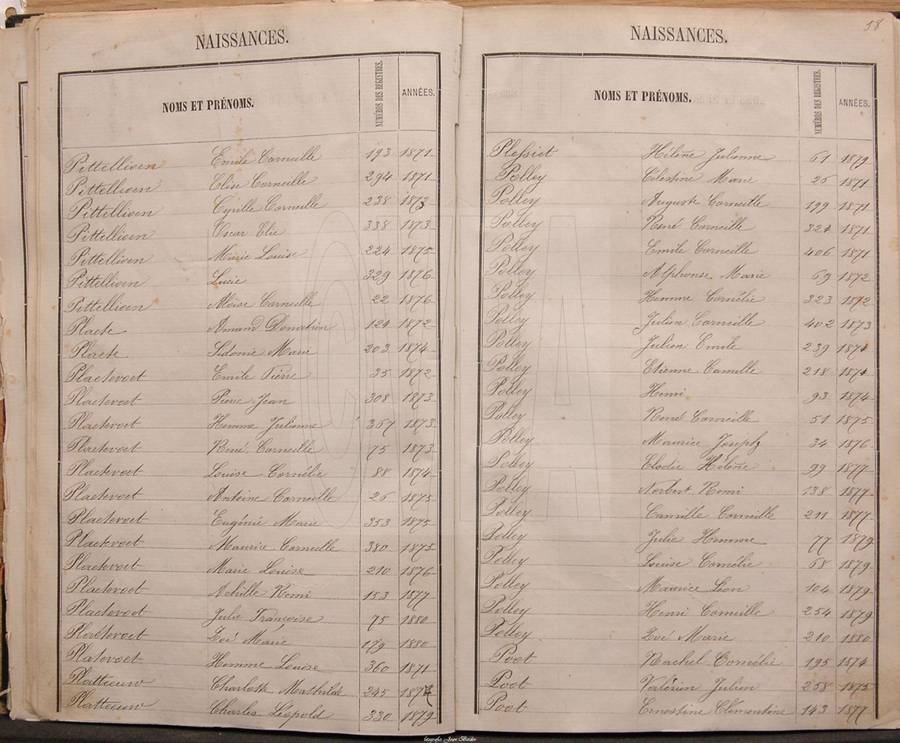 NAISSANCES.
NOMS ET PRÉNOMS. NUMÉROS DES REGISTRES. ANNÉES.
Pittellioen Emile Corneille 193 1871
Pittellioen Elise Corneille 294 1871
Pittellioen Cyrille Corneille 238 1873
Pittellioen Oscar Elie 338 1873
Pittellioen Marie Louise 224 1875
Pittellioen Louise 329 1876
Pittellioen Aloïse Corneille 22 1876
Placke Amand Donatien 124 1872
Placke Sidonie Marie 203 1874
Plackevoet Emile Pierre 35 1872
Plackevoet Pierre Jean 308 1873
Plackevoet Hemma Julienne 357 1873
Plackevoet René Corneille 75 1873
Plackevoet Louise Cornélie 88 1874
Plackevoet Antoine Corneille 26 1875
Plackevoet Eugénie Marie 353 1875
Plackevoet Maurice Corneille 380 1875
Plackevoet Marie Louise 210 1876
Plackevoet Achille Remi 153 1877
Plackevoet Julie Françoise 75 1880
Plackevoet Zoé Marie 179 1880
Platevoet Hemma Louise 360 1871
Platteeuw Charlotte Mathilde 245 1874
Platteeuw Charles Léopold 330 1879
18
NAISSANCES.
NOMS ET PRÉNOMS. NUMÉROS DES REGISTRES. ANNÉES.
Plessiet Hélène Julienne 61 1879
Polley Célestine Marie 26 1871
Polley Auguste Corneille 199 1871
Polley René Corneille 324 1871
Polley Emile Corneille 406 1871
Polley Alphonse Marie 69 1872
Polley Hemma Cornélie 323 1872
Polley Julien Corneille 402 1873
Polley Julien Emile 239 1874
Polley Etienne Camille 218 1874
Polley Henri 93 1874
Polley René Corneille 51 1875
Polley Maurice Joseph 34 1876
Polley Elodie Hélène 99 1877
Polley Norbert Remi 138 1877
Polley Camille Corneille 211 1877
Polley Julie Hemma 77 1879
Polley Louise Cornélie 68 1879
Polley Maurice Léon 104 1879
Polley Henri Corneille 254 1879
Polley Zoé Marie 210 1880
Poot Rachel Cornélie 195 1874
Poot Valérien Julien 258 1875
Poot Ernestine Clémentine 143 1877